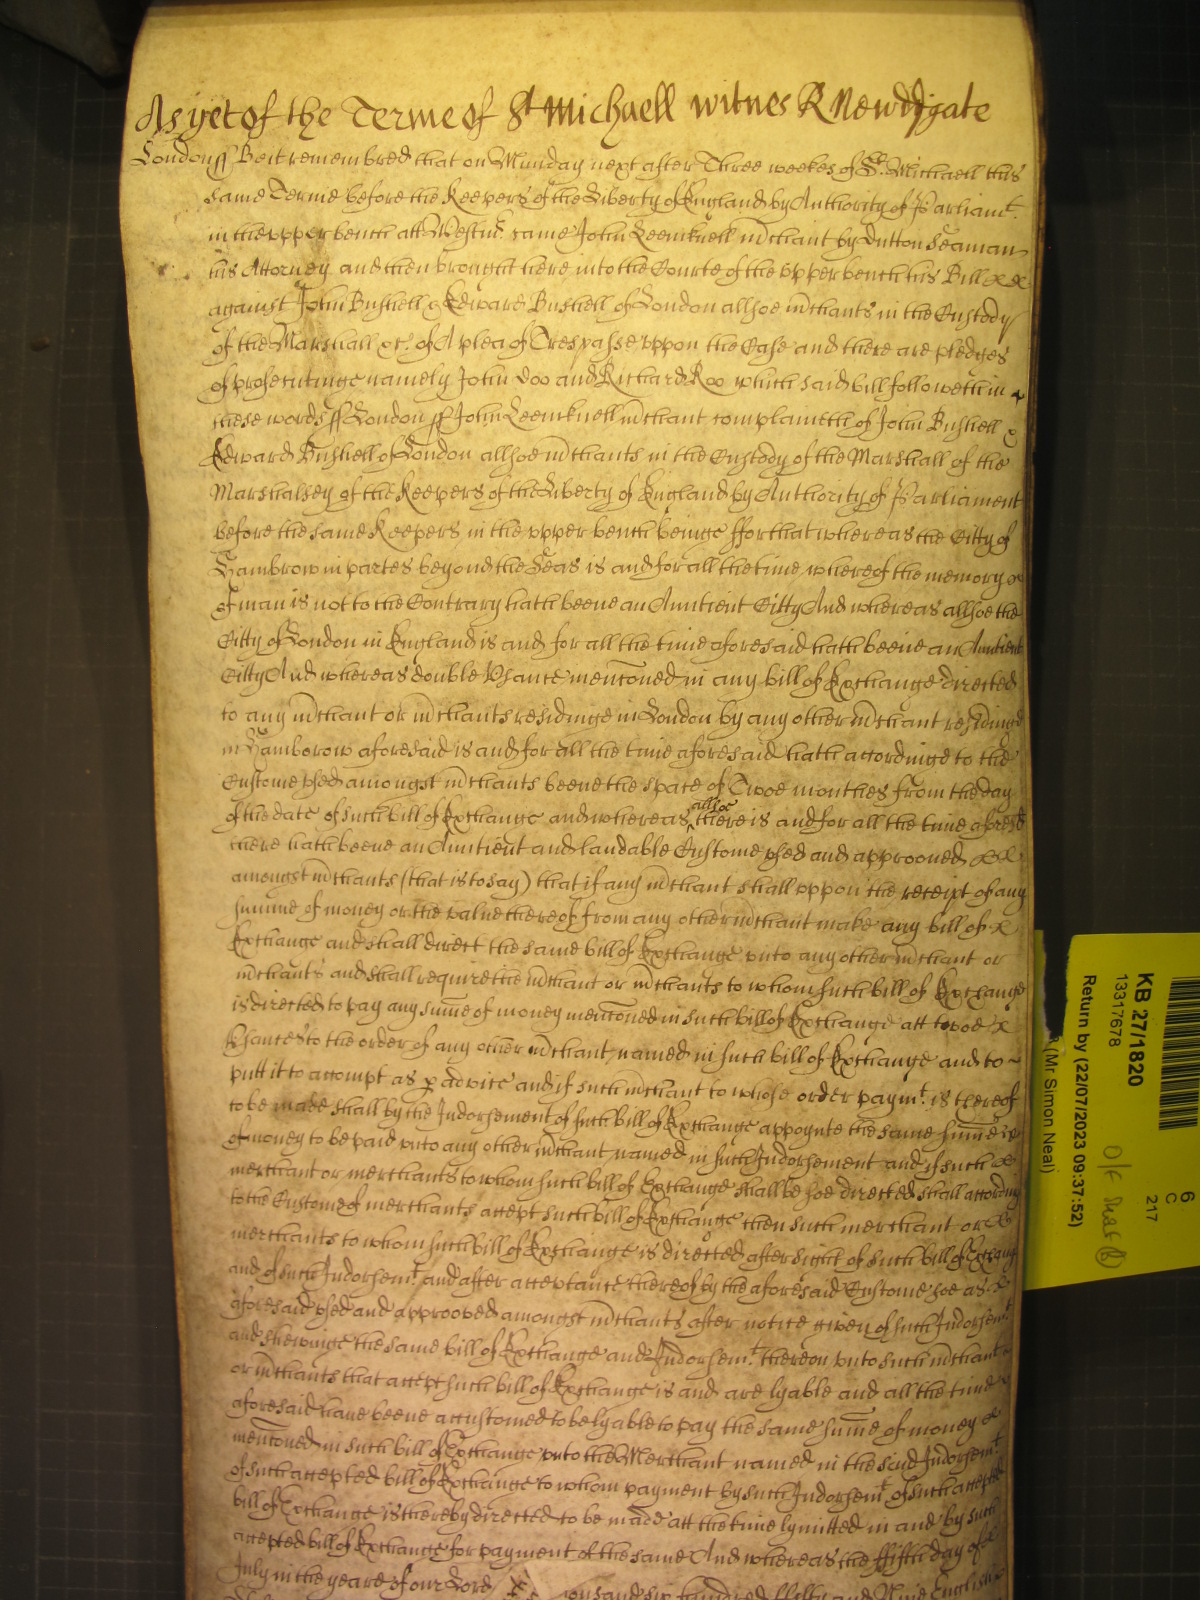 As yet of the Terme of St Michaell witnes R Newdigate
London ss Be it remembred that on Munday next after Three weekes of St. Michaell this
same Terme before the Keepers of the Liberty of England by Authority of Parliamt.
in the vpper bench att Westmr. came John Leemknell mchant by Dutton Seaman
his Attorney and then brought here into the Courte of the vpper bench his Bill
against John Bushell & Edward Bushell of London allsoe mchants in the Custody
of the Marshall &c. of A plea of Trespasse vppon the Case and there are pledges
of prosecutinge namely John Doo and Richard Roo which said bill followeth in
these words ss London ss John Leemknell mchant complaineth of John Bushell &
Edward Bushell of London allsoe mchants in the Custody of the Marshall of the
Marshalsey of the Keepers of the Liberty of England by Authority of Parliament
before the same Keepers in the vpper bench beinge ffor that whereas the Citty of
Hambrow in partes beyond the Seas is and for all the time whereof the memory
of man is not to the Contrary hath beene an Auntient Citty And whereas allsoe the
Citty of London in England is and for all the time aforesaid hath beene an Auntient
Citty And whereas double Vsance menconed in any bill of Exchange directed
to any mchant or mchants residinge in London by any other mchant residinge
in Hamborow aforesaid is and for all the time aforesaid hath accordinge to the
Custome vsed amongst mchants beene the space of Twoe monthes from the day
of the date of such bill of Exchange and whereas allsoe there is and for all the time aforesd
there hath beene an Auntient and laudable Custome vsed and approoued
amongst mchants (that is to say) that if any mchant shall vppon the receipt of any
summe of money or the value thereof from any other mchant make any bill of
Exchange and shall direct the same bill of Exchange vnto any other mchant or
mchants and shall require the mchant or mchants to whom such bill of Exchange
is directed to pay any summe of money menconed in such bill of Exchange att twoe
Vsances to the order of any other mchant named in such bill of Exchange and to
putt it to accompt as p advice and if such mchant to whose order paymt. is thereof
to be made shall by the Indorsement of such bill of Exchange appoynte the same summe
of money to be paid vnto any other mchant named in such Indorsement and if such
merchant or merchants to whom such bill of Exchange shall be soe directed shall accordinge
to the Custome of merchants accept such bill of Exchange then such merchant or
merchants to whom such bill of Exchange is directed after sight of such bill of Exchange
and of such Indorsemt. and after acceptance thereof by the aforesaid Custome soe as
aforesaid vsed and approoved amongst mchants after notice given of such Indorsemt
and shewinge the same bill of Exchange and Indorsemt. thereon vnto such mchant
or mchants that accept such bill of Exchange is and are lyable and all the time
aforesaid have beene accustomed to be lyable to pay the same summe of money
menconed in such bill of Exchange vnto the Merchant named in the said Indorsemt.
of such accepted bill of Exchange to whom payment by such Indorsemt. of such accepted
bill of Exchange is thereby directed to be made att the time lymitted in and by such
accepted bill of Exchange for payment of the same And whereas the ffifth day of
July in the yeare of our Lord
KB 27/1820
13317678
Return by (22/07/2023 09:37:52)
(Mr Simon Neal)
6
C
217